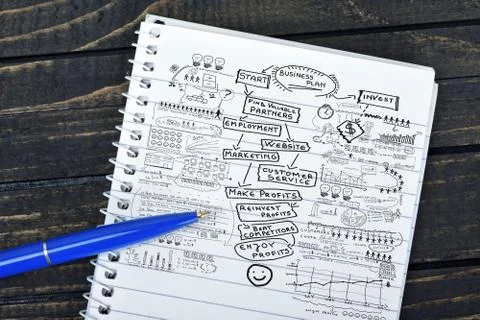 START
BUSINESS
PLAN
INVEST
FIND VALUABLE
PARTNERS
EMPLOYMENT
WEBSITE
MARKETING
CUSTOMER
SERVICE
MAKE PROFITS
REINVEST
PROFITS
BEAT
COMPETITORS
ENJOY
PROFITS